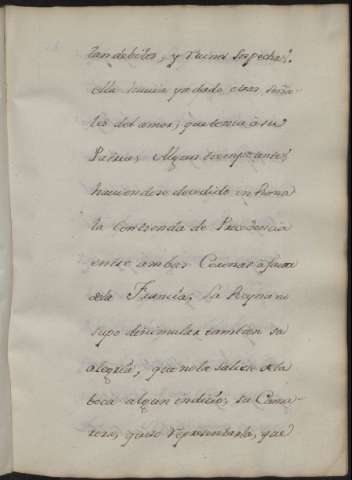 tan debiles, y ruines sospechas.
Ella havia ya dado otras seña-
les del amor, que tenia à su
Patria; Algun tiempo antes,
haviendose decidido en Roma
la Contienda de Precedencia
entre ambas Coronas à favor
de la Francia; La Reyna no
supo disimular tambien su
alegria, que no la saliese de la
boca algun indicio; su Cama-
rera, quiso representarla, que